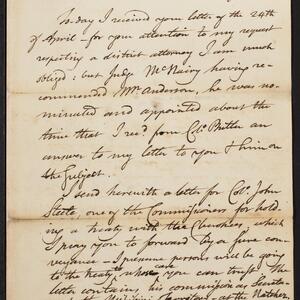 To-day I received your letter of the 24th
of April - for your attention to my request
respecting a district attorney I am much
obliged: but Judge McNairy having re-
commended Mr. Anderson, he was no-
minated and appointed about the
time that I rec'd from Colo. an
answer to my letter to you & him on
the subject.
I send herewith a letter for Colo. John
Steele, one of the Commissioners for hold-
ing a treaty with the Cherokees, which
I pray you to forward by a sure con-
veyance - I presume persons will be going
to the treaty whom you can trust. The
letter contains his commission as Secreta-
ry of the Mississippi Territory - at the Natchez